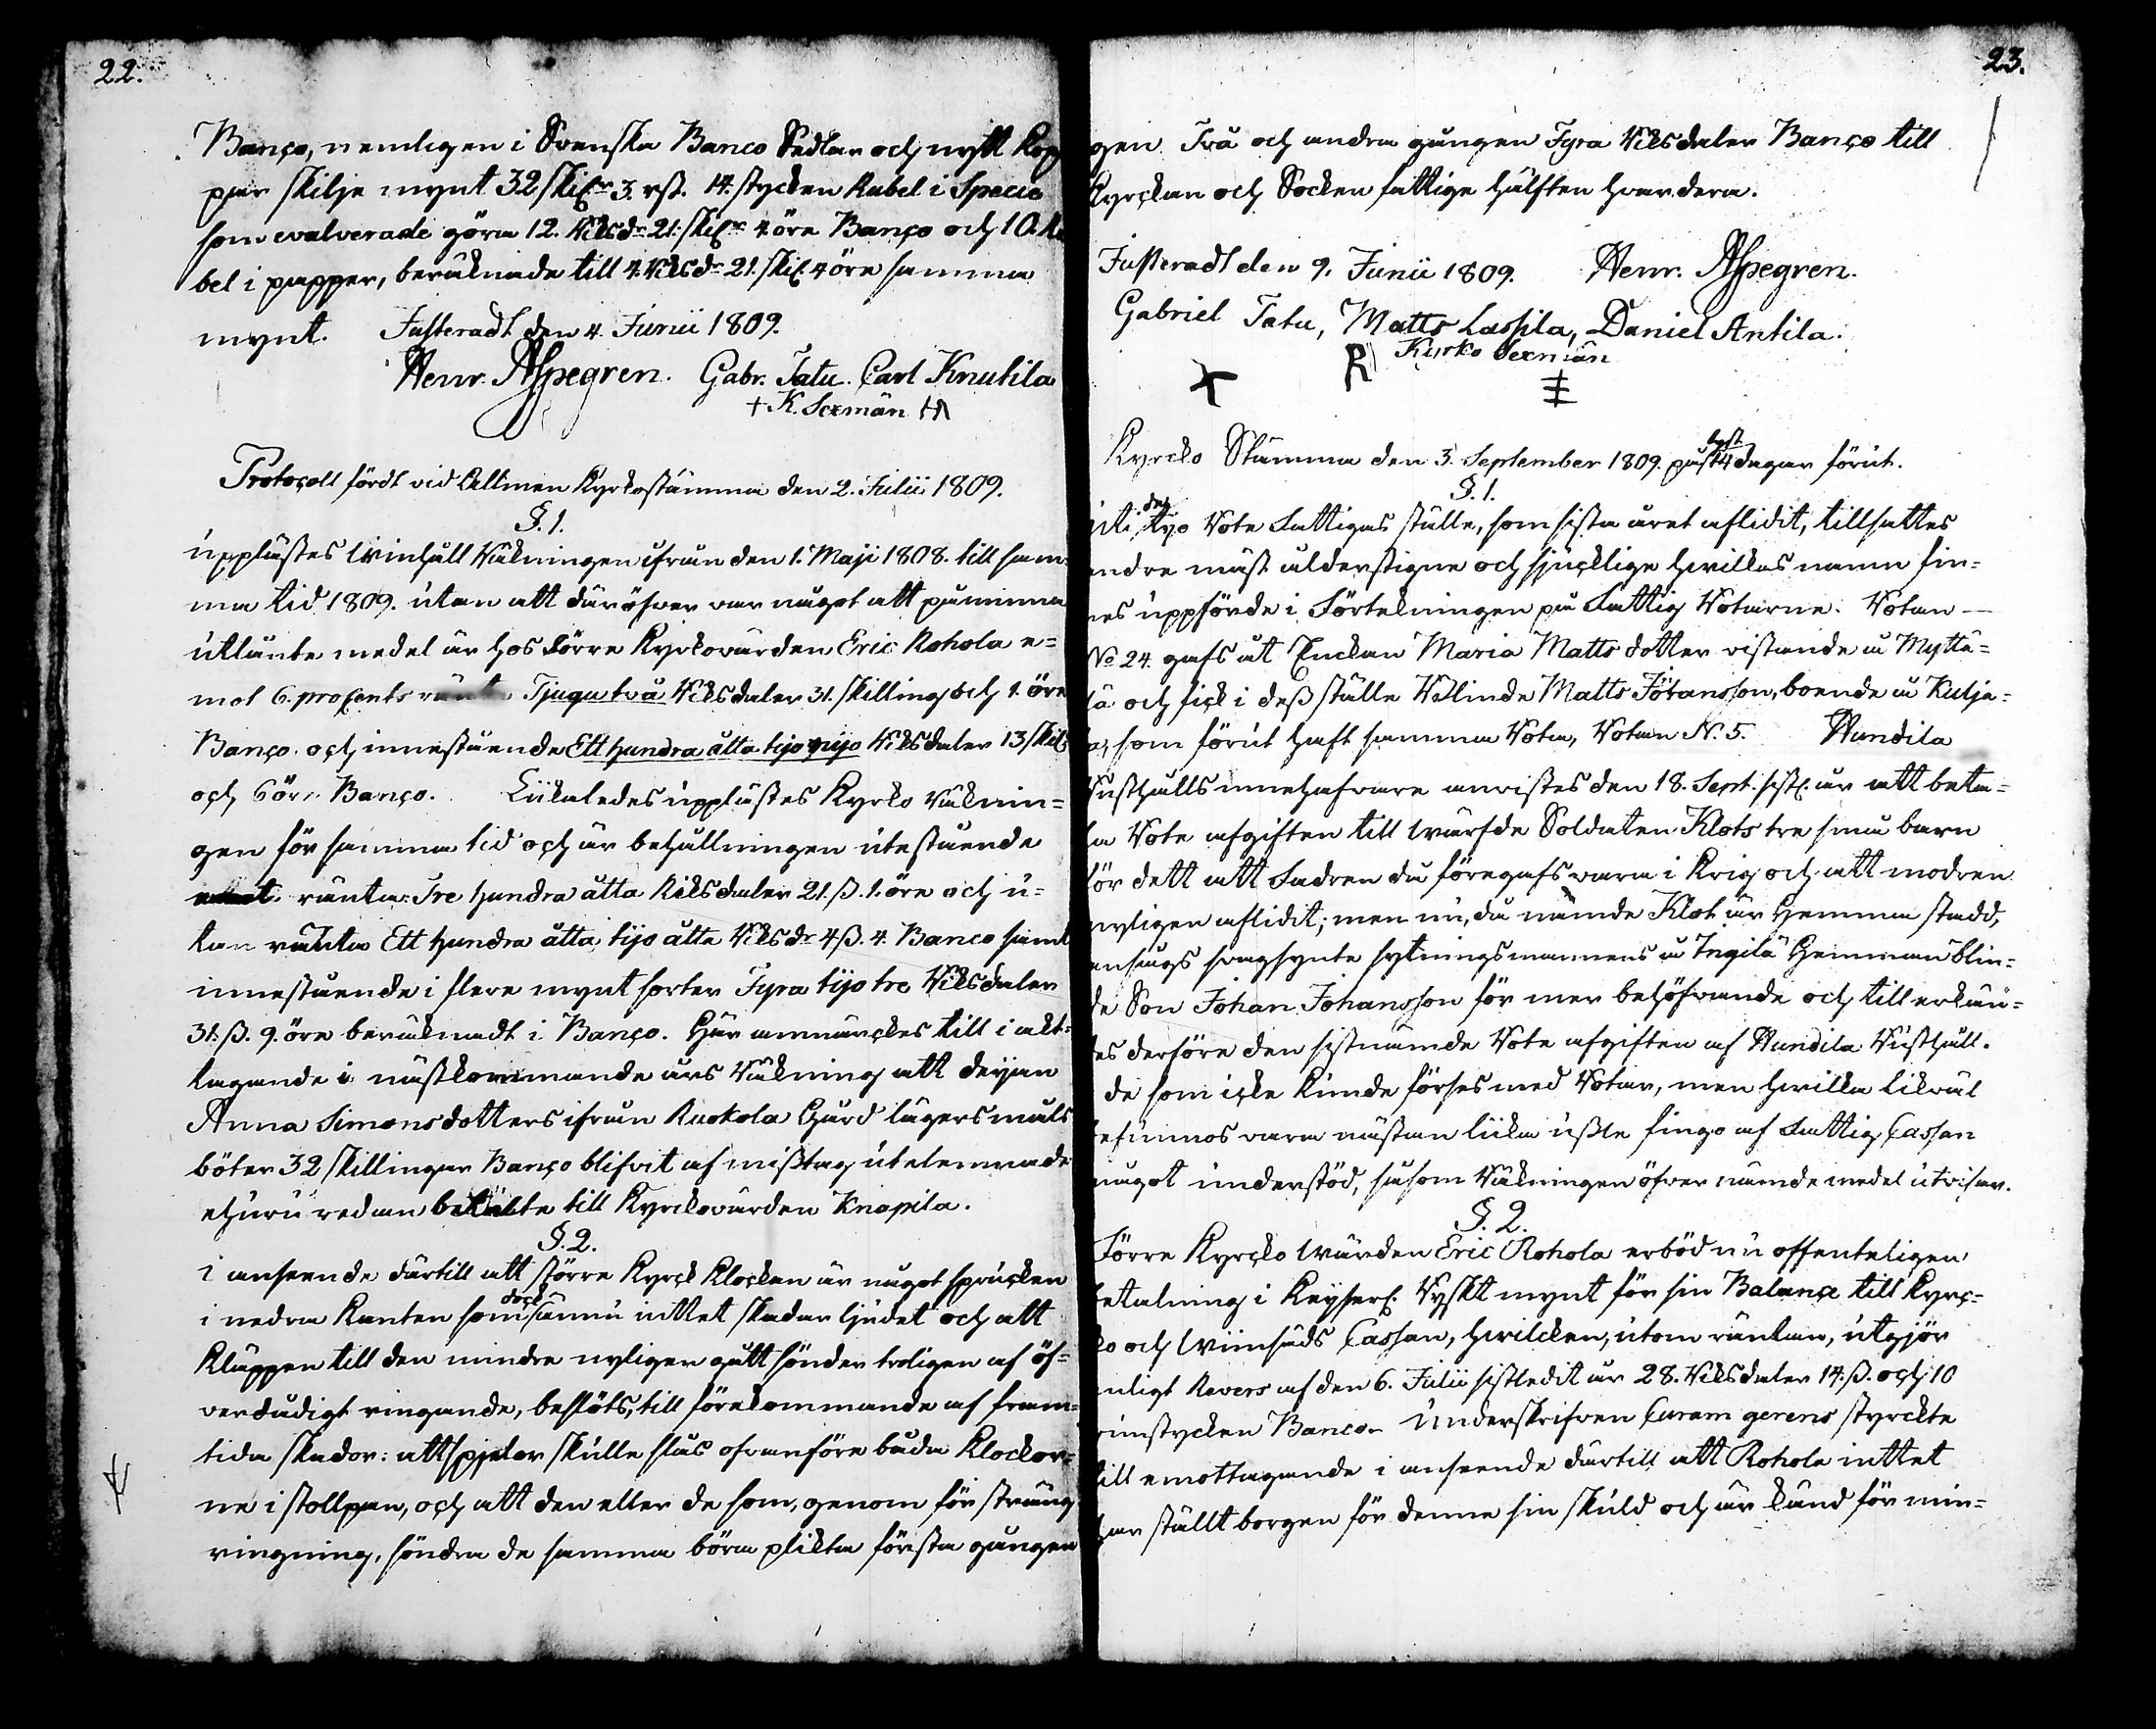 22.
Banco, nemligen i Svenska Banco Sedlar och nytt Kop
par skilje mynt 32 skilr 3. rst. 14. stycken Rubel i Specie
som evalverade göra 12. Riksdr 21. skilr 4 öre Banco och 10. Ru
bel i papper, beräknade till 4. Riksdr 21. skil. 4 öre samma
mynt. Justeradt den 4. Junii 1809.
Henr. Alpegren. Gabr. Tatu. Carl Knutila
+ K. Sexmän
Protocoll fördt vid Allmen Kyrkostämma den 2. Julii 1809.
§. 1.
upplästes Winhåll Räkningen ifrån den 1. Maji 1808. till sam
ma tid 1809. utan att däröfver var något att påminna
utlånte medel är hos Förre Kyrkovärden Eric Rohola e=
mot 6. procents ränta Tjugu två Riksdaler 31. skilling och 1. öre
Banco. och innestående Ett hundra åtta tijo nijo Riksdaler 13 skil
och 6 öre Banco. Liikaledes upplästes Kyrko Räknin=
gen för samma tid och är behållningen utestående
emot ränta: Tre hundra åtta Riksdaler 21. ß. 1. öre och u=
tan ränta Ett hundra åtta tijo åtta Riksdr 4 ß. 4. Banco samt
innestående i flere mynt sorter Fyra tijo tre Riksdaler
31. ß. 9. öre beräknadt i Banco. Här anmärckes till i akt=
tagande i nästkommande års Räkning att Pigan
Anna Simonsdotters ifrån Ruokola Gård lägersmåls
böter 32 skillingar Banco blifvit af misstag utelemnade
ehuru redan betalte till Kyrckovärden Knapila.
§. 2.
i anseende därtill att större Kyrck Klockan är något sprucken
i nedra Kanten som dock ännu inttet skadar ljudet och att
Kläppen till den mindre nyligen gått sönder troligen af öf=
verdådigt ringande, beslöts, till förekommande af fram=
tida skador: att spjelor skulle slås ofvanföre båda Klockor=
ne i stollpan, och att den eller de som, genom för sträng
ringning, söndra de samma böra plikta första gången
23.
gen Två och andra gången Fyra Riksdaler Banco till
Kyrckan och Socken fattige hälften hvardera.
Justeradt den 9. Junii 1809. Henr. Alpegren.
Gabriel Tatu, Matts Lassila, Daniel Antila.
Kyrko Sexmän
Kyrcko Stämma den 3. September 1809. pålyst 14 dagar förut.
§. 1.
uti de tyo Rote Fattigas ställe, som sista året aflidit, tillsattes
andre mäst ålderstigne och sjucklige hvilkas namn fin=
nes uppförde i Förtekningen på Fattig Rotarne. Rotan
No 24. gafs åt Enckan Maria Matts dotter vistande å Myttä=
lä och fick i dess ställe Blinde Matts Johansson, boende å Kulja=
la, som förut haft samma Rota, Rotan N. 5. Handila
Rusthålls innehafvare anvistes den 18. Sept. sistl. år att beta=
la Rote afgiften till Wärfde Soldaten Klots tre små barn
för dett att Fadren då föregafs vara i Krig och att modren
nyligen aflidit; men nu, då nämde Klot är hemma stadd,
ansågs svagsynte sytningsmannens å Ingilä Hemman blin=
de Son Johan Johansson för mer behöfvande och till erkän=
des derföre den sistnämde Rote afgiften af Handila Rusthåll.
de som icke kunde förses med Rotar, men hvilka likväl
befunnos vara nästan liika ussle fingo af Fattig Cassan
något understöd, såsom Räkningen öfver nämde medel utvisar.
§. 2.
Förre Kyrcko Wärden Eric Rohola erböd nu offenteligen
betalning i Keyserl. Ryskt mynt för sin Balance till Kyrc=
ko och Wiinsäds Cassan, hvilcken, utom räntan, utgjör
enligt Revers af den 6. Julii sistledit år 28. Riksdaler 14. ß. och 10
runstycken Banco. Underskrifven Curam gerens styrckte
till emottagande i anseende därtill att Rohola inttet
har ställt borgen för denne sin skuld och är känd för min=